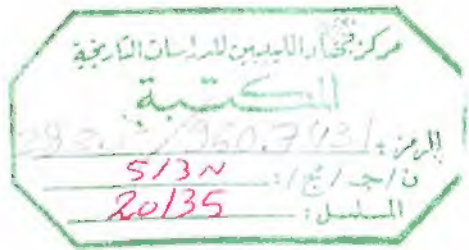 مركز جهاد الليبيين للدراسات التاريخية
المكتبة
الرمز: 960.7431
ن / جـ / مج /: 5/3N
المسلسل: 20135